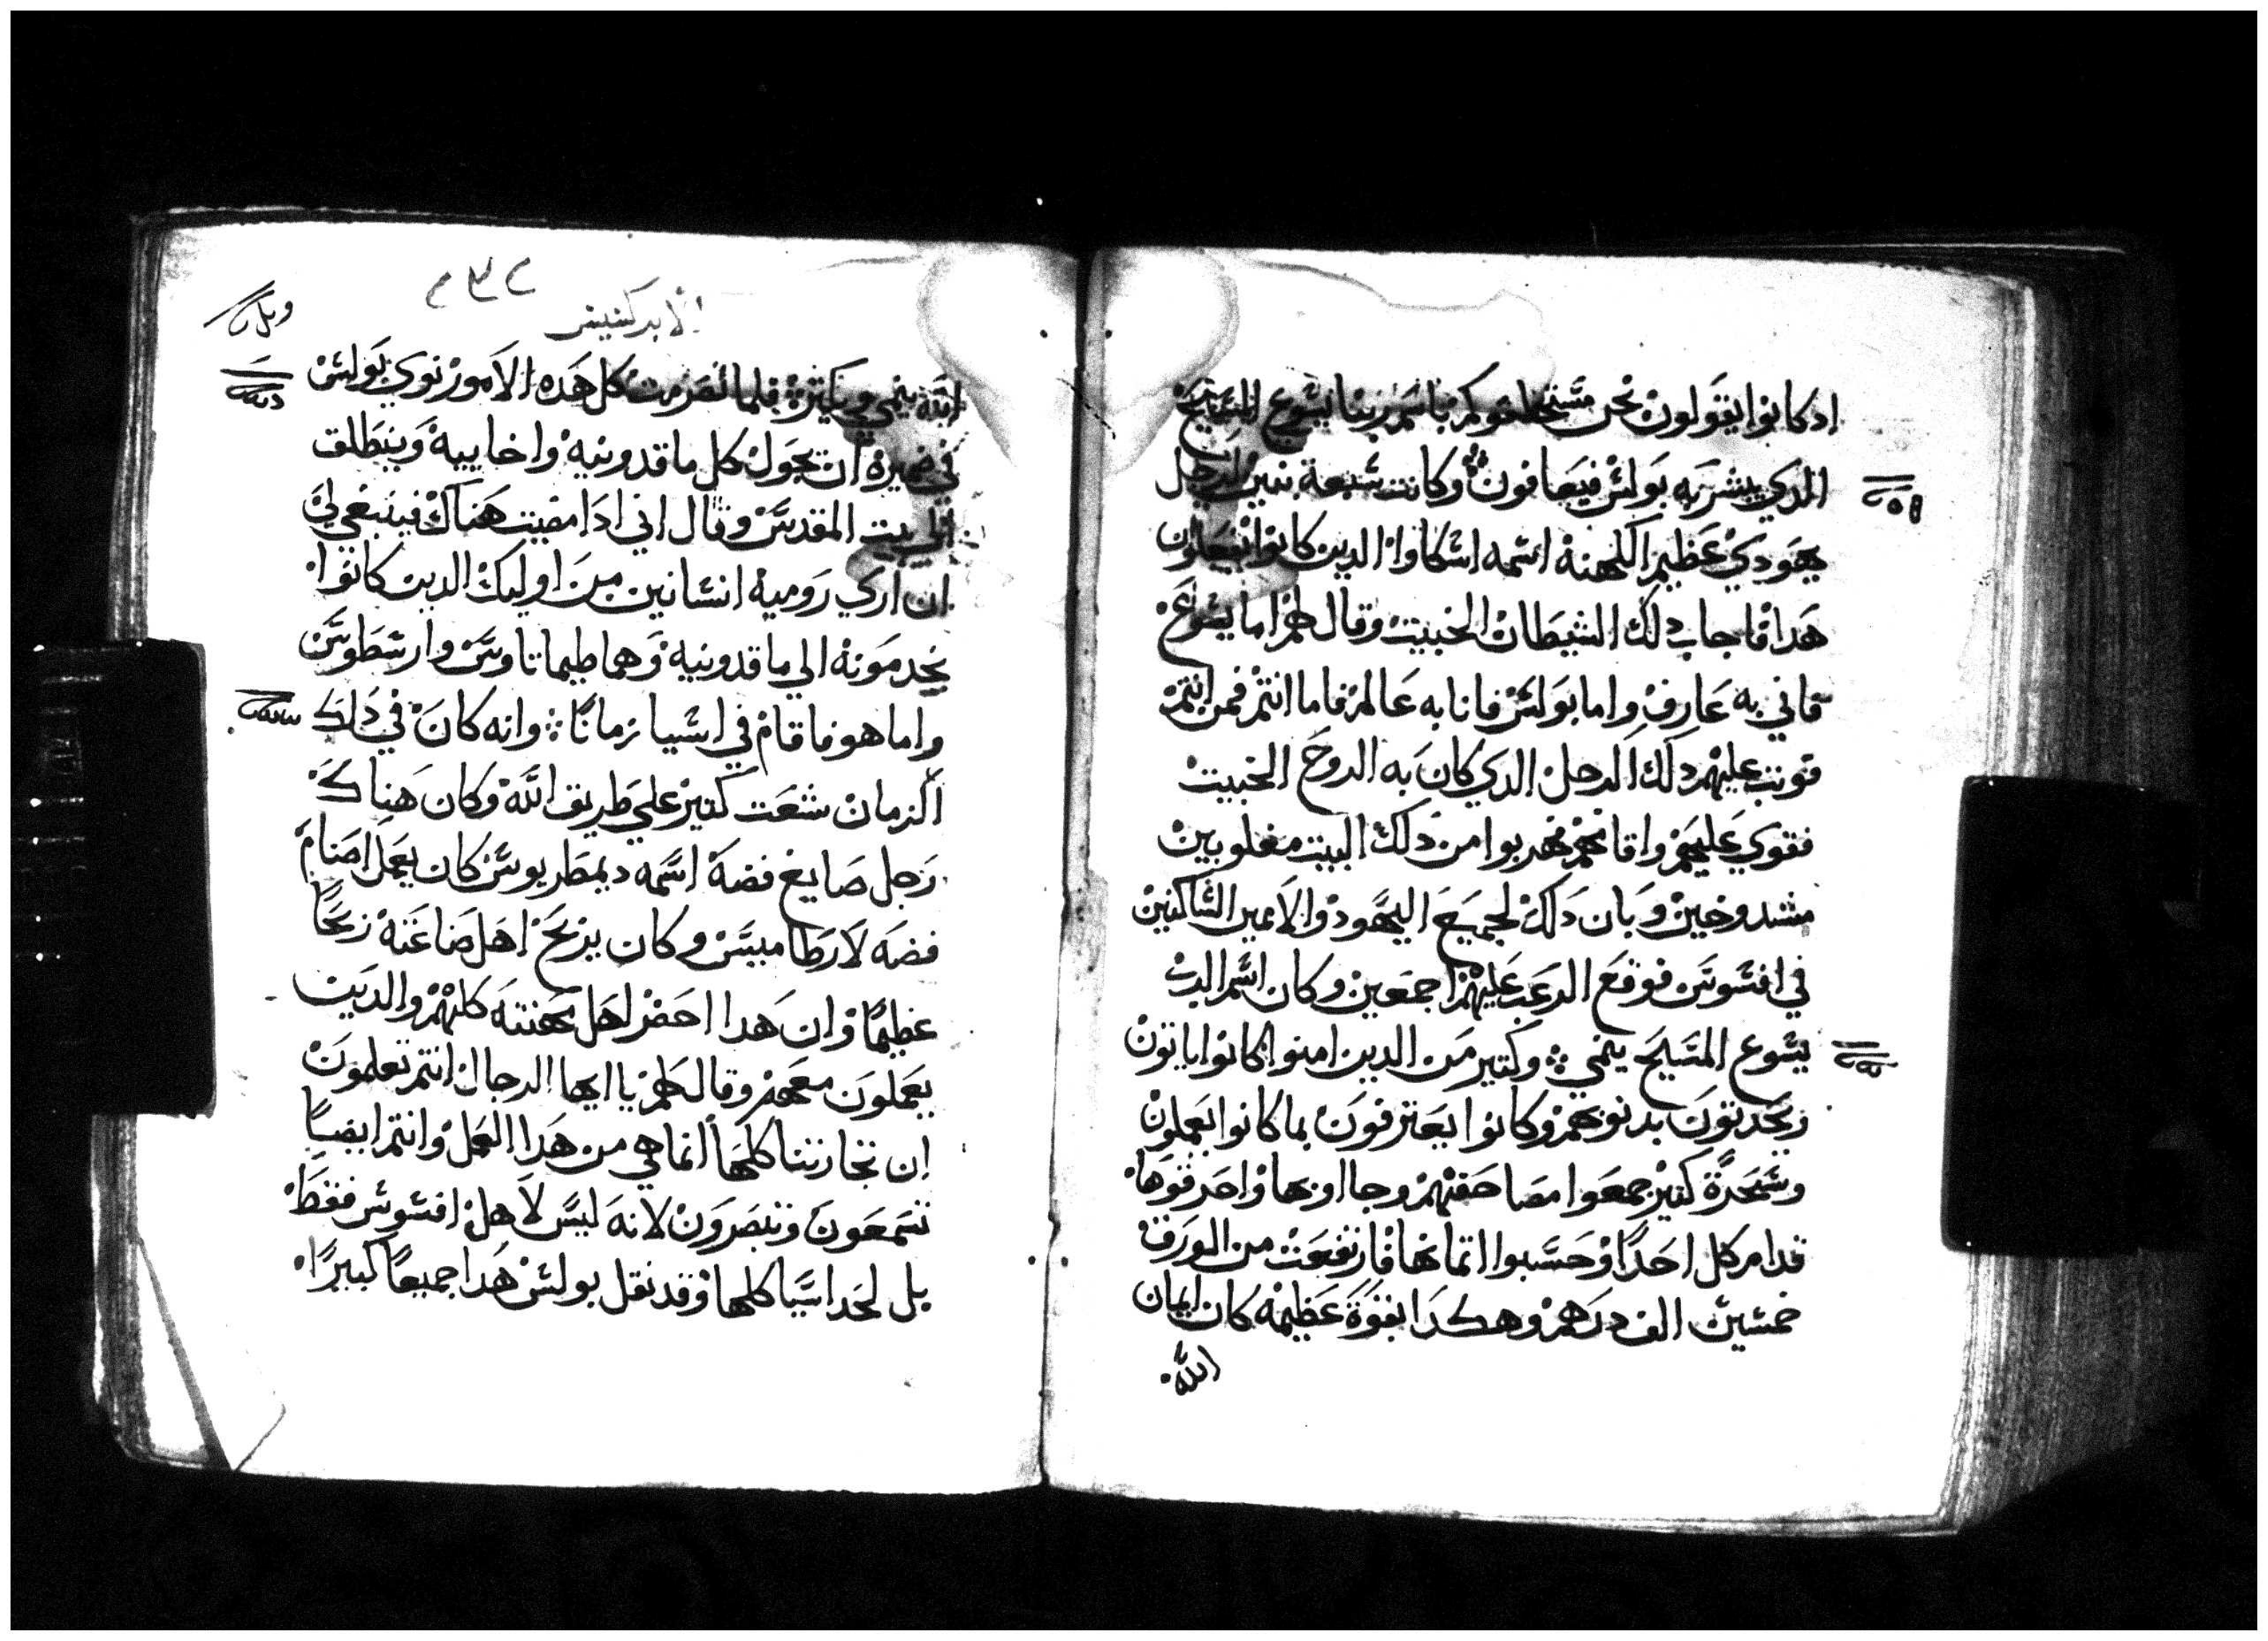 اد كانوا يقولون نحن نستحلفوكم باسم ربنا يسوع المسيح
الدي يبشر به بولس فيعافون وكانت سبعة بنين لرجل
يهودي عظيم الكهنه اسمه اسكاوا الدين كانوا يفعلون
هدا فاجاب دلك الشيطان الخبيت وقال لهم اما يسوع
فاني به عارف واما بولس فانا به عالم فاما انتم فمن انتم
فوتب عليهم دلك الرجل الدي كان به الروح الخبيت
فقوي عليهم واقامهم فهربوا من دلك البيت مغلوبين
مشدوخين وبان دلك لجميع اليهود والاميين الساكنين
في افسوس فوقع الرعب عليهم اجمعين وكان اسم الرب
يسوع المسيح ينمي وكتير من الدين امنوا كانوا ياتون
ويحدتون بدنوبهم وكانوا يعترفون بما كانوا يعملون
وسحرة كتير جمعوا مصاحفهم وجااوا بها واحرقوها
قدام كل احدا وحسبوا اتمانها فارتفعت من الورق
خمسين الف درهم وهكدا بقوة عظيمه كان ايمان
الله
الابركسيس
الله ينمي ويكتر فلما انصرمت كل هده الامور نوي بولس
في ضميره ان يجول كل ماقدونيه واخاييه وينطلق
الي بيت المقدس وقال اني ادا مضيت هناك فينبغي لي
ان اري روميه انسانين من اوليك الدين كانوا
يخدمونه الي ماقدونيه وهما طيماتاوس وارسطوس
واما هو فاقام في اسيا زمانا وانه كان في دلك
الزمان شعت كتير علي طريق الله وكان هناك
رجل صايغ فضه اسمه ديمطريوس كان يعمل اصنام
فضه لارطاميس وكان يربح اهل صناعته ربحا
عظيما وان هدا احضر اهل مهنته كلهم والدين
يعملون معهم وقال لهم يا ايها الرجال انتم تعلمون
ان تجارتنا كلها انما هي من هدا العمل وانتم ايضا
تسمعون وتبصرون لانه ليس لاهل افسوس فقط
بل لحد اسيا كلها وقد نقل بولس هدا جميعا كبيرا